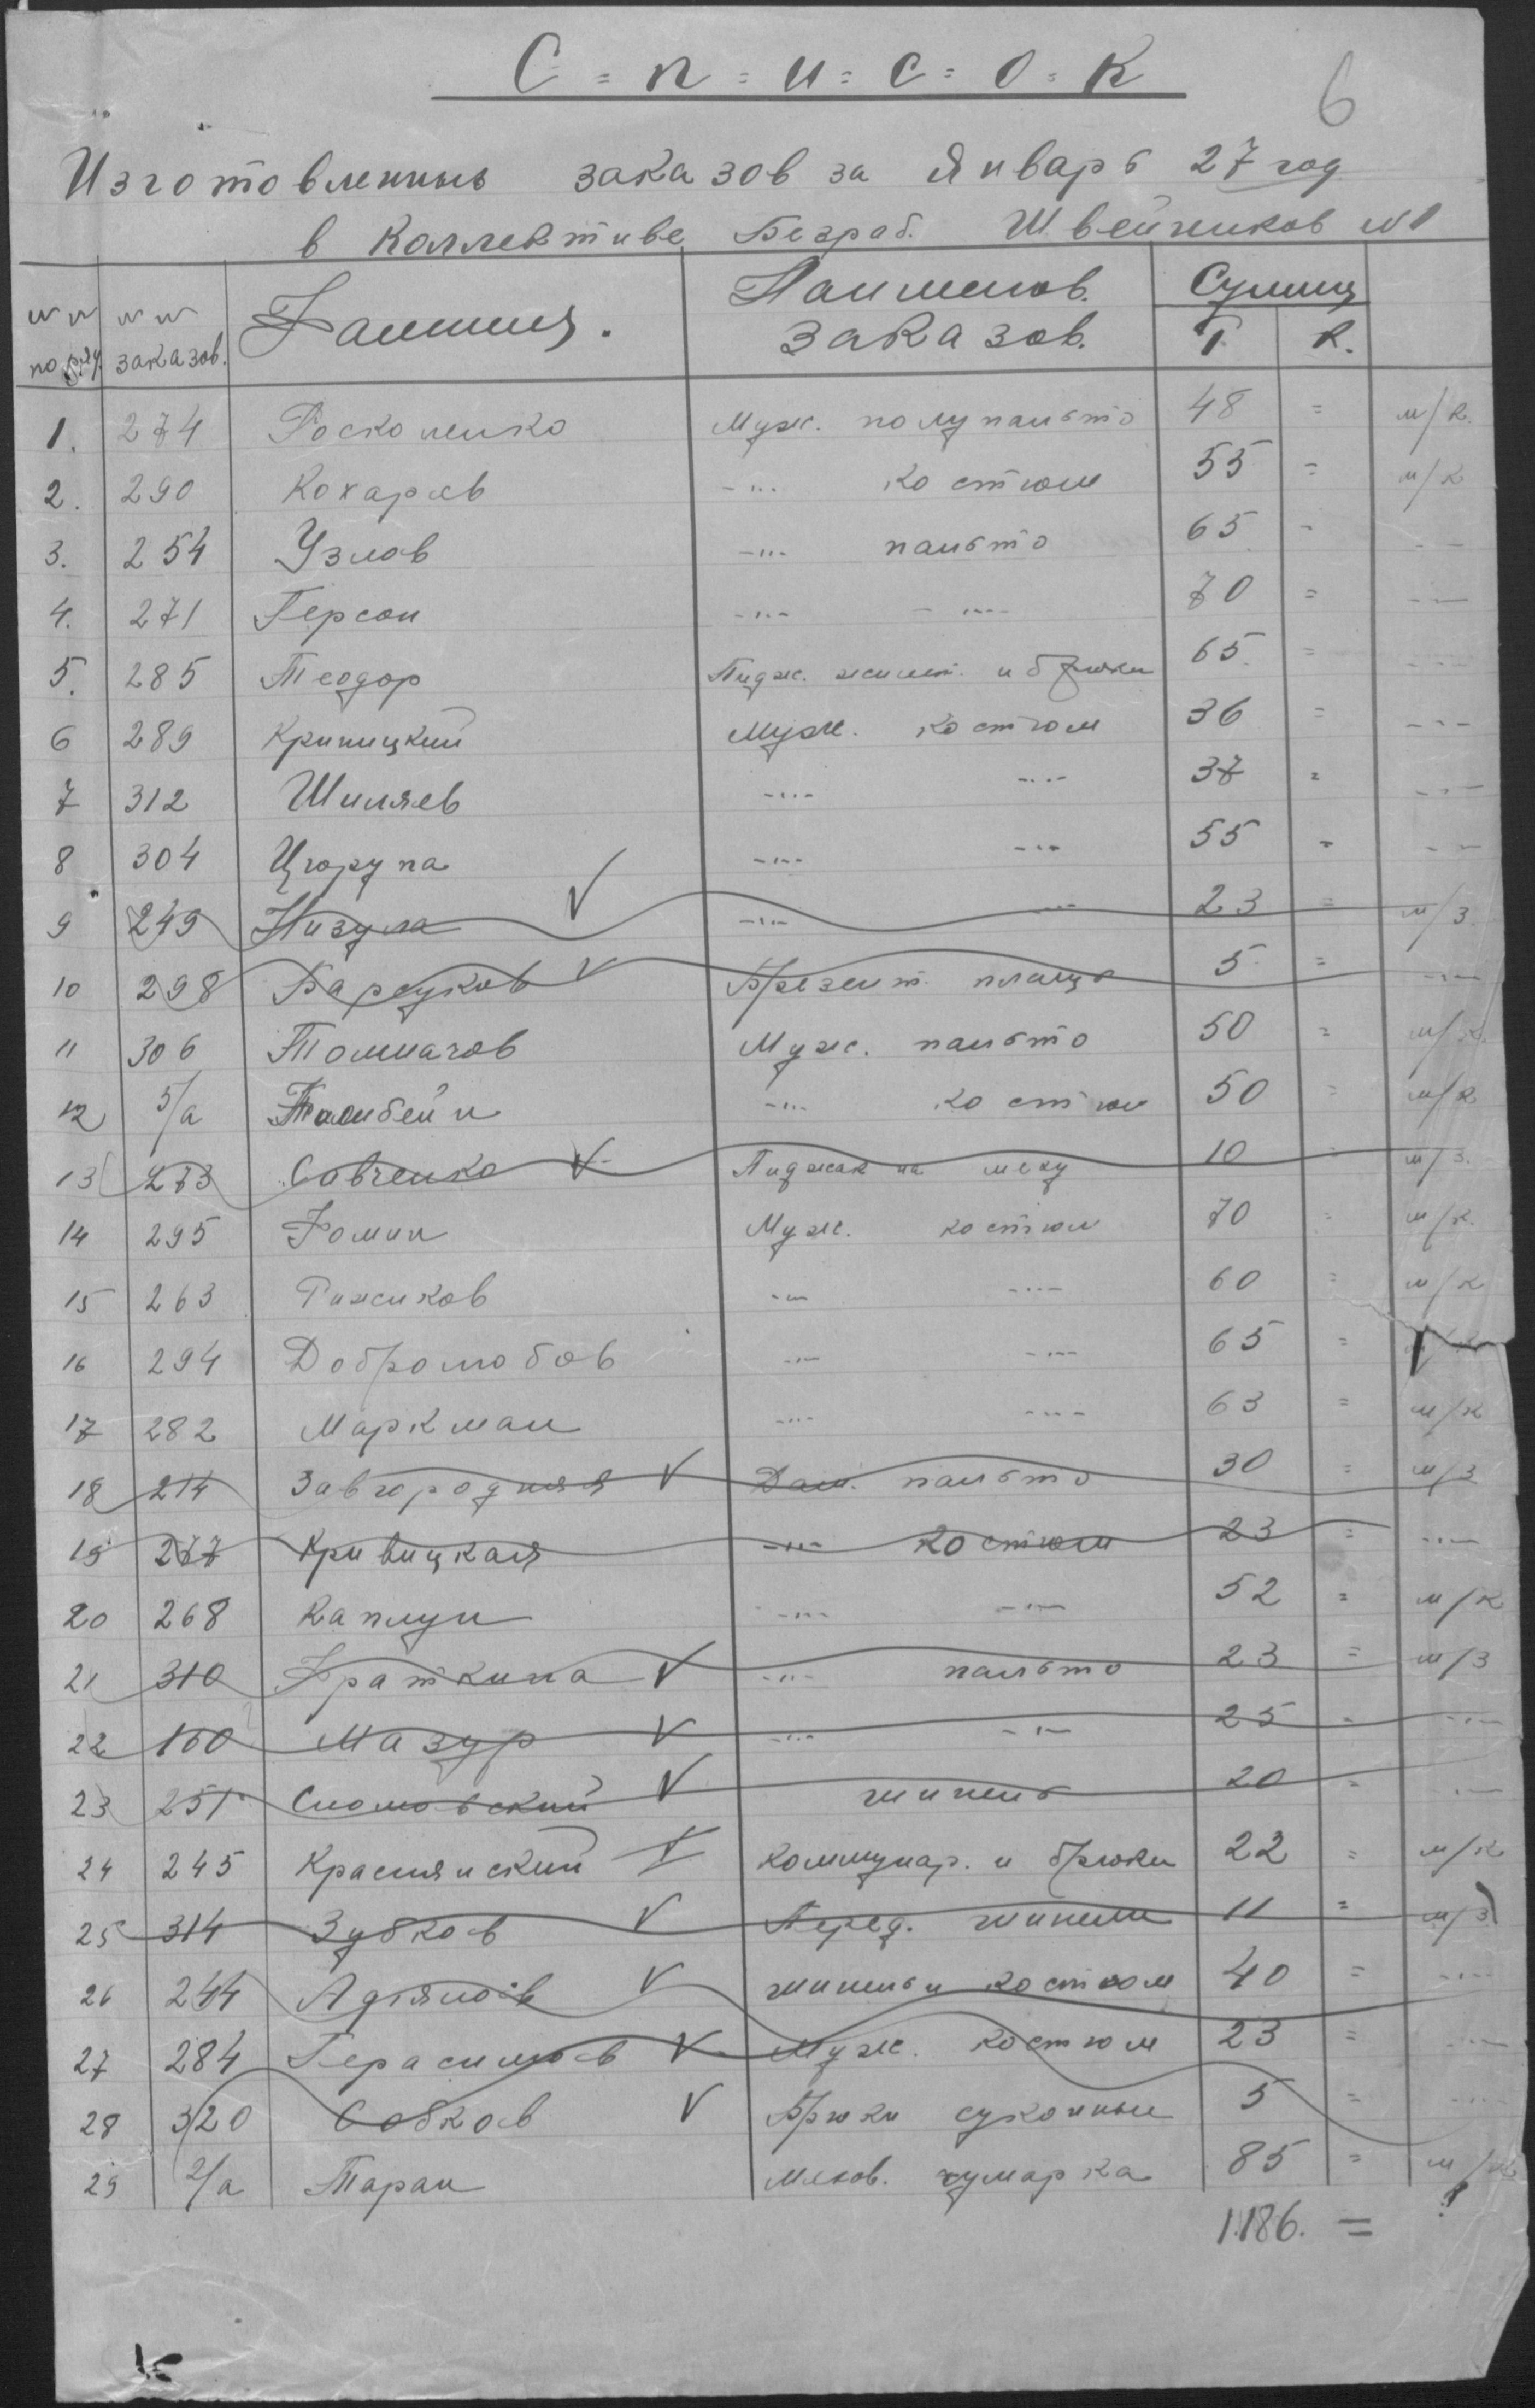 С = п = и = с = о = к
6
Изготовленных заказов за Январь 27 год
в Коллективе Безраб. Швейников №1
№№ по ряд. №№ заказов. Фамилия. Наименов. заказов. Сумма Р. К.
1. 274 Росколенко Муж. полупальто 48 = м/к.
2. 290 Кохарев -"- костюм 55 = м/к
3. 254 Узлов -"- пальто 65 - - -
4. 271 Герсон -"- -"- 70 = -"-
5. 285 Теодор Пидж. жилет. и брюки 65 = -"-
6 289 Криницкий Муж. костюм 36 = -"-
7 312 Шиляев -"- -"- 37 = -"-
8 304 Цюрупа -"- -"- 55 = - -
9 249 Низула -"- -"- 23 = м/з.
10 298 Барсуков Брезент. плащ 5 = -"-
11 306 Толмачов Муж. пальто 50 = м/к.
12 5/а -"- костюм 50 = м/к
13 273 Савченко Пиджак на меху 10 = м/з.
14 295 Фомин Муж. костюм 70 = м/к.
15 263 Рижиков -"- -"- 60 = м/к
16 294 Добролюбов -"- -"- 65 =
17 282 Маркман -"- -"- 63 = м/к
18 214 Завгородняя Дам. пальто 30 = м/з
19 277 Кривицкая -"- костюм 23 = -"-
20 268 Каплун -"- -"- 52 = м/к
21 310 Фраткина -"- пальто 23 = м/з
22 160 Мазур -"- -"- 25 - -"-
23 251 шинель 20 = -"-
24 245 Краснянский коммунар. и брюки 22 = м/к
25 314 Зубков Перед. шинели 11 = м/з
26 244 шинель и костюм 40 = -"-
27 284 Герасимов Муж. костюм 23 = -"-
28 320 Собков Брюки суконные 5 = -"-
29 2/а Таран чумарка 85 = м/к
1.186. =